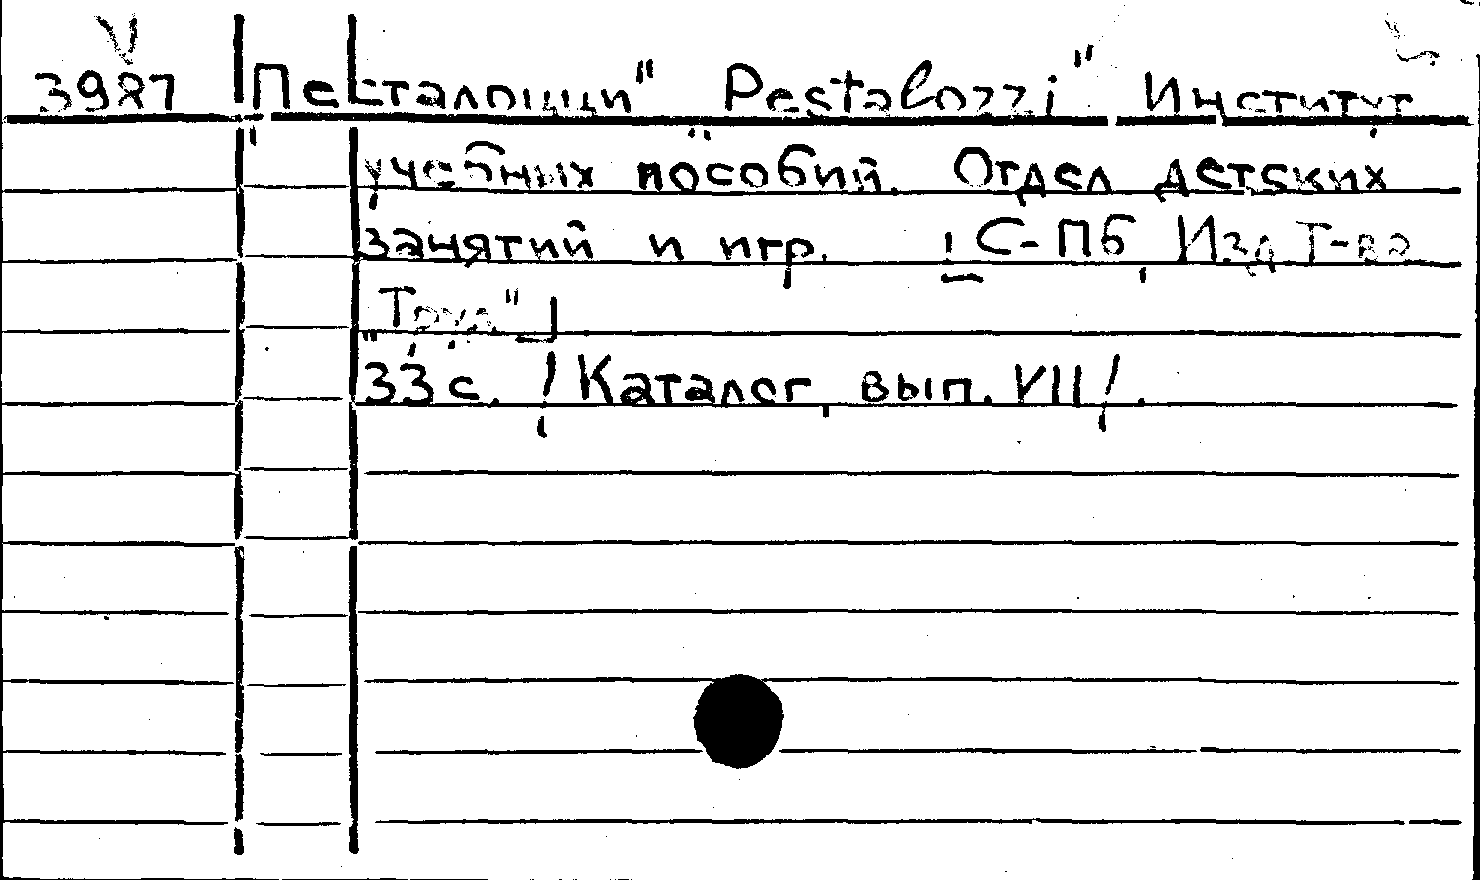 3987 „Песталоцци" „Pestalozzi" Институт
учебных пособий. Отдел детских
занятий и игр. [С-Пб, Изд. Т-ва
„Труд"]
33 с. /Каталог, вып. VII/.